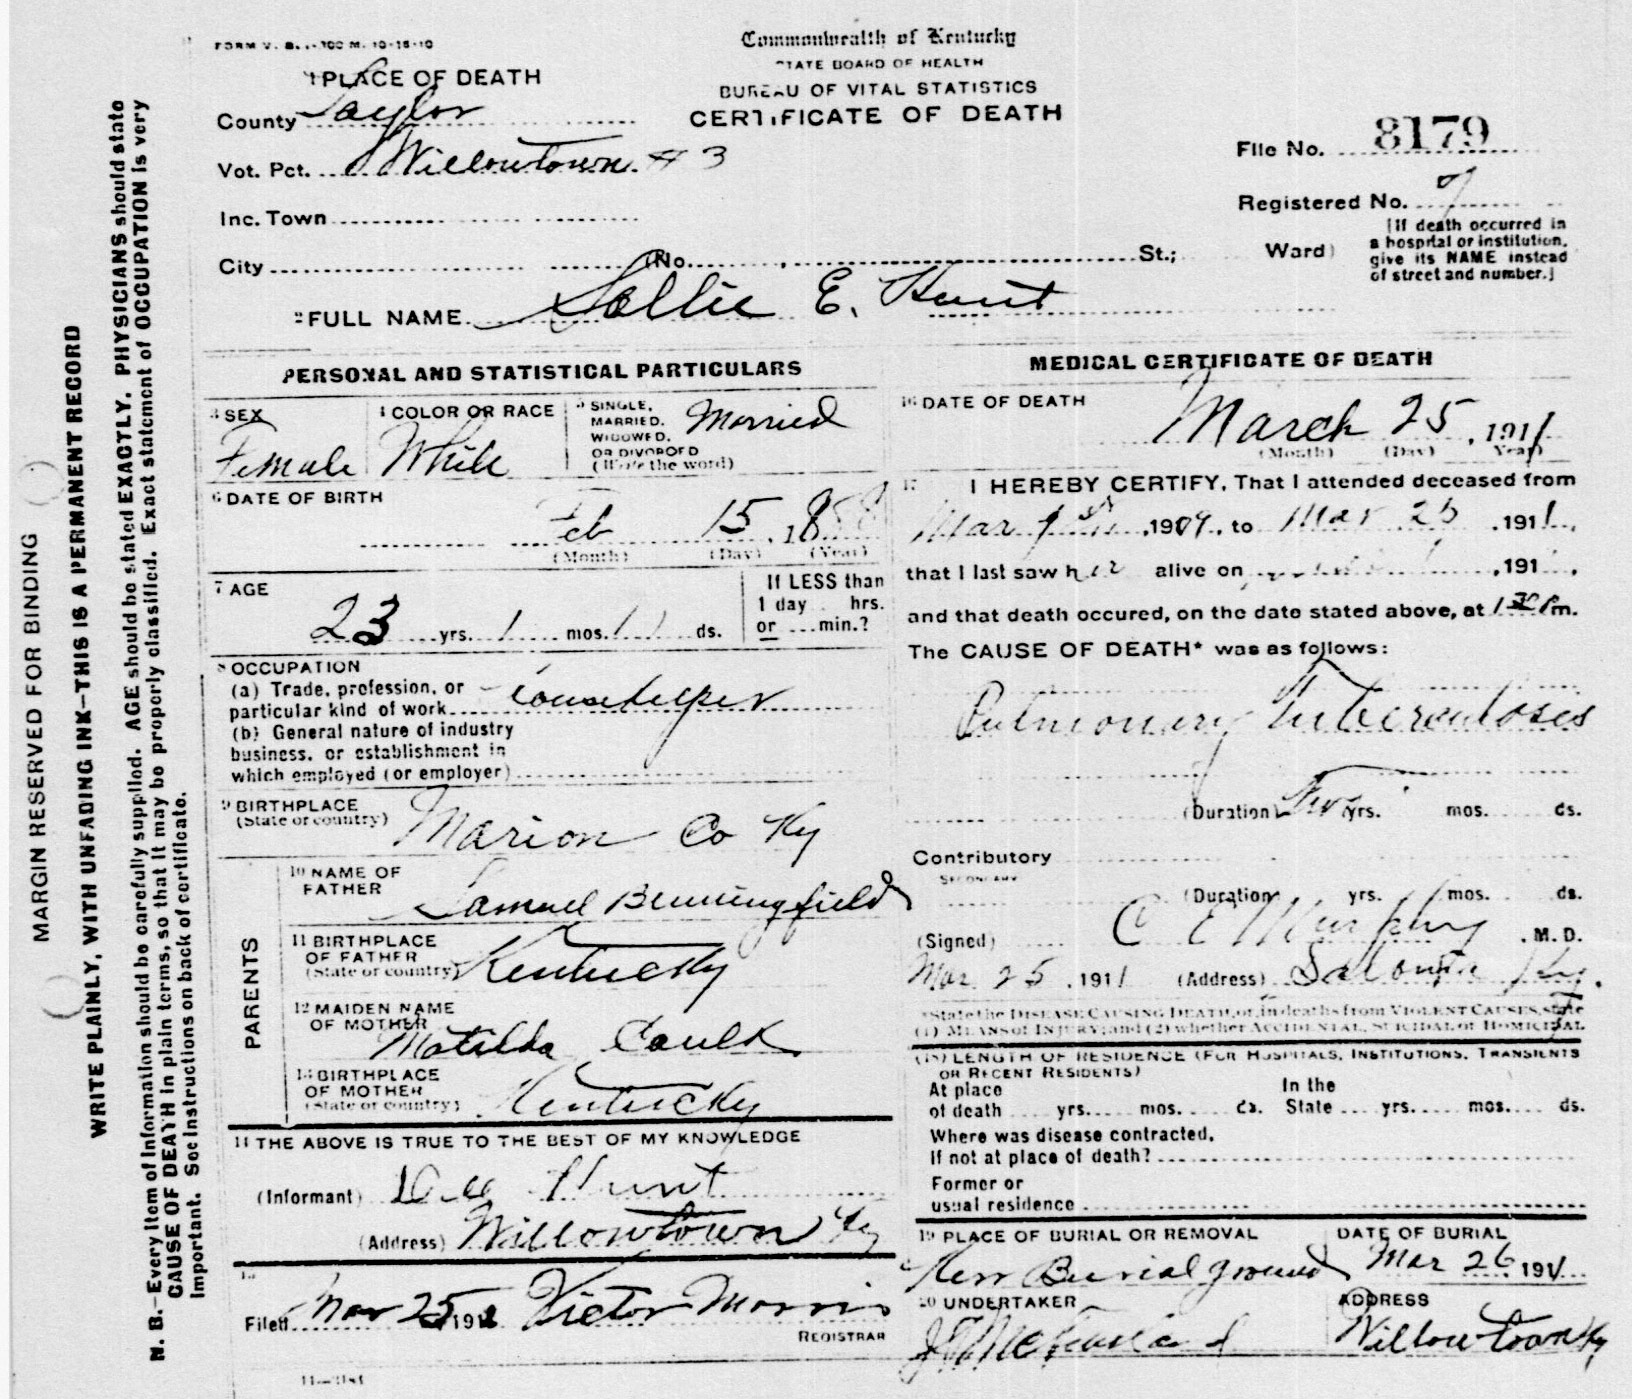 FORM V. S. 1-300 M. 10-15-10
Commonwealth of Kentucky
STATE BOARD OF HEALTH
BUREAU OF VITAL STATISTICS
CERTIFICATE OF DEATH
1 PLACE OF DEATH
County Taylor
Vot. Pct. Willowtown # 3
Inc. Town
City (No. , St.; Ward)
File No. 8179
Registered No. 7
[If death occurred in
a hospital or institution,
give its NAME instead
of street and number.]
2 FULL NAME Sallie E. Hunt
PERSONAL AND STATISTICAL PARTICULARS
3 SEX
Female
4 COLOR OR RACE
White
5 SINGLE,
MARRIED,
WIDOWED,
OR DIVORCED
(Write the word)
Married
6 DATE OF BIRTH
Feb 15, 1888
(Month) (Day) (Year)
7 AGE
23 yrs. 1 mos. 11 ds.
If LESS than
1 day hrs.
or min.?
8 OCCUPATION
(a) Trade, profession, or
particular kind of work
(b) General nature of industry
business, or establishment in
which employed (or employer)
9 BIRTHPLACE
(State or country)
Marion Co Ky
PARENTS
10 NAME OF
FATHER
Samuel Benningfield
11 BIRTHPLACE
OF FATHER
(State or country)
Kentucky
12 MAIDEN NAME
OF MOTHER
Matilda Caulk
13 BIRTHPLACE
OF MOTHER
(State or country)
Kentucky
14 THE ABOVE IS TRUE TO THE BEST OF MY KNOWLEDGE
(Informant) Hunt
(Address) Willowtown Ky
15
Filed Mar 25 1911 Victor Morris
REGISTRAR
MEDICAL CERTIFICATE OF DEATH
16 DATE OF DEATH
March 25, 1911
(Month) (Day) Year)
17 I HEREBY CERTIFY, That I attended deceased from
Mar 1909, to Mar 25, 1911,
that I last saw her alive on , 191 ,
and that death occured, on the date stated above, at 1 30 Pm.
The CAUSE OF DEATH* was as follows:
Pulmonary Tuberculosis
(Duration) Two yrs. mos. ds.
Contributory
SECONDARY
(Duration yrs. mos. ds.
(Signed) C E Murphy, M. D.
Mar 25, 1911 (Address) Saloma Ky.
*State the DISEASE CAUSING DEATH, or, in deaths from VIOLENT CAUSES, state
(1) MEANS OF INJURY; and (2) whether ACCIDENTAL, SUICIDAL or HOMICIDAL
(18) LENGTH OF RESIDENCE (FOR HOSPITALS, INSTITUTIONS, TRANSIENTS
OR RECENT RESIDENTS)
At place In the
of death yrs. mos. ds. State yrs. mos. ds.
Where was disease contracted,
If not at place of death?
Former or
usual residence
19 PLACE OF BURIAL OR REMOVAL
Kerr Burial ground
DATE OF BURIAL
Mar 26 1911
20 UNDERTAKER
ADDRESS
Willowtown Ky
MARGIN RESERVED FOR BINDING
WRITE PLAINLY, WITH UNFADING INK—THIS IS A PERMANENT RECORD
N. B.—Every item of information should be carefully supplied. AGE should be stated EXACTLY. PHYSICIANS should state
CAUSE OF DEATH in plain terms, so that it may be properly classified. Exact statement of OCCUPATION is very
important. See instructions on back of certificate.